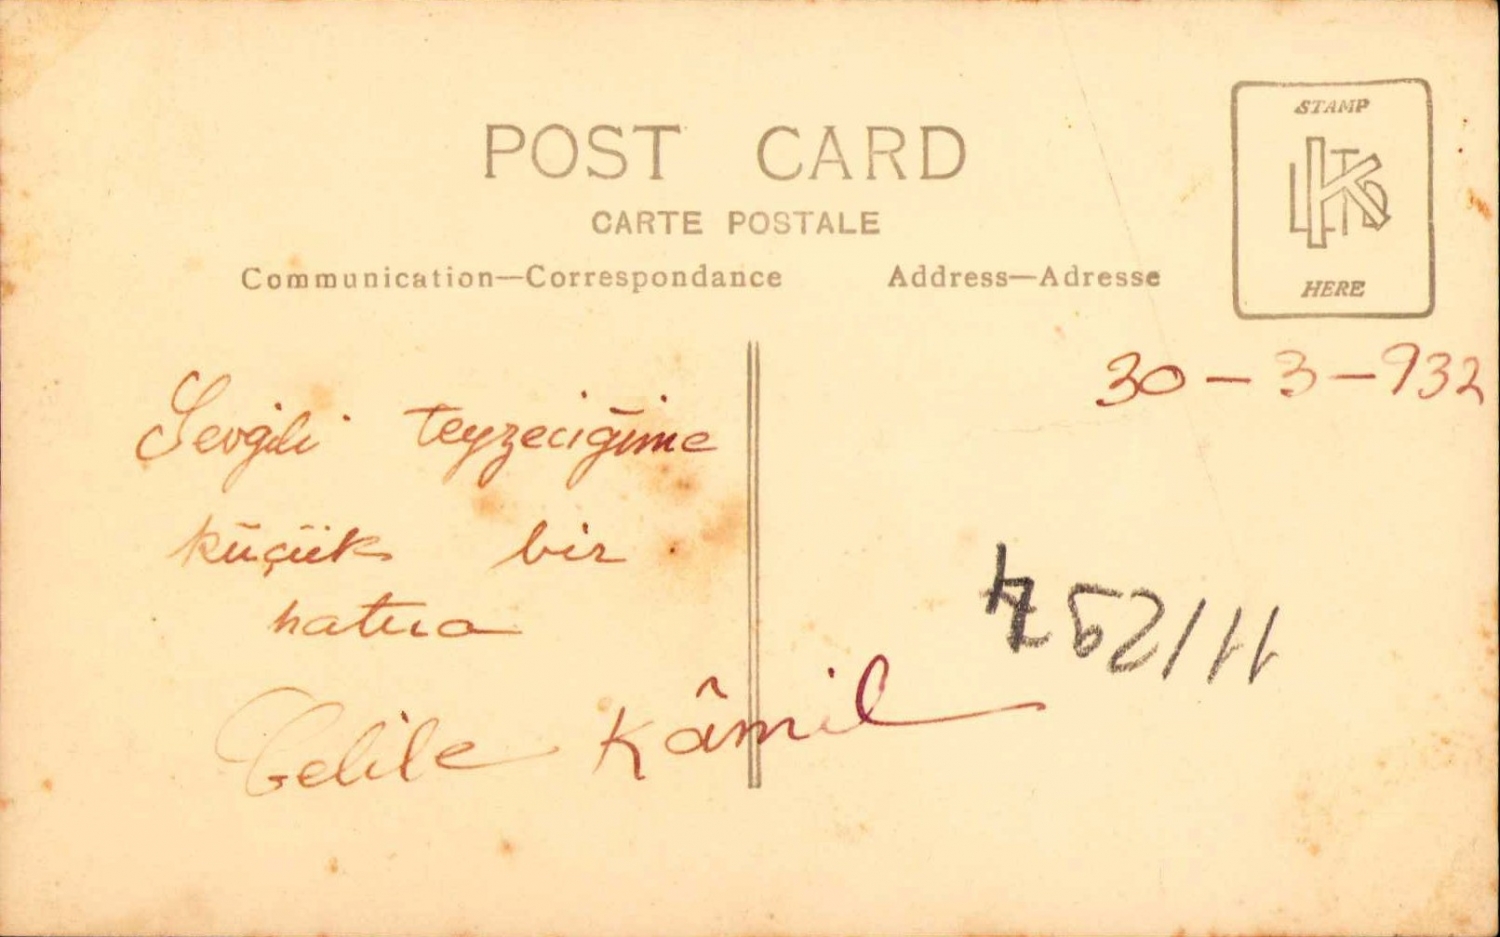 POST CARD
CARTE POSTALE
Communication—Correspondance Address—Adresse
STAMP
HERE
30-3-932
Sevgili teyzeciğime
küçük bir
hatıra
Celile Kâmil